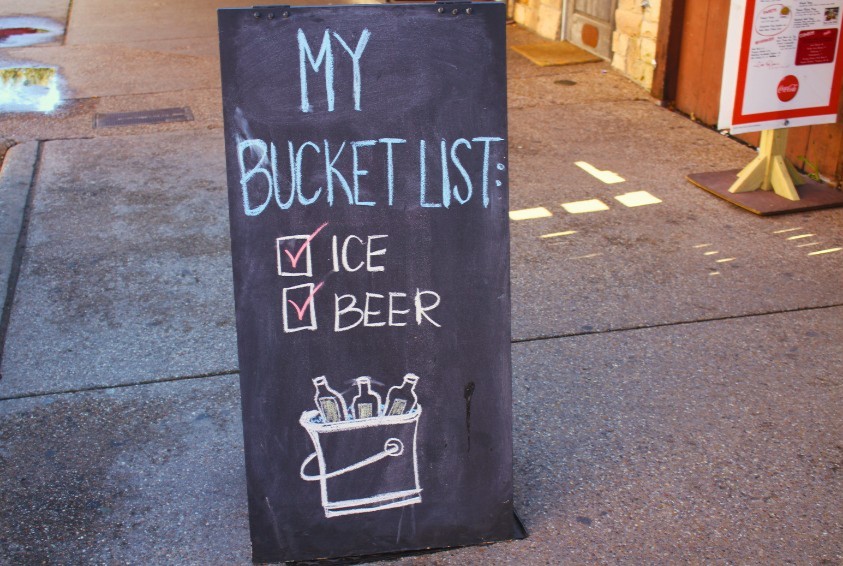 MY
BUCKET LIST:
ICE
BEER
Coca-Cola